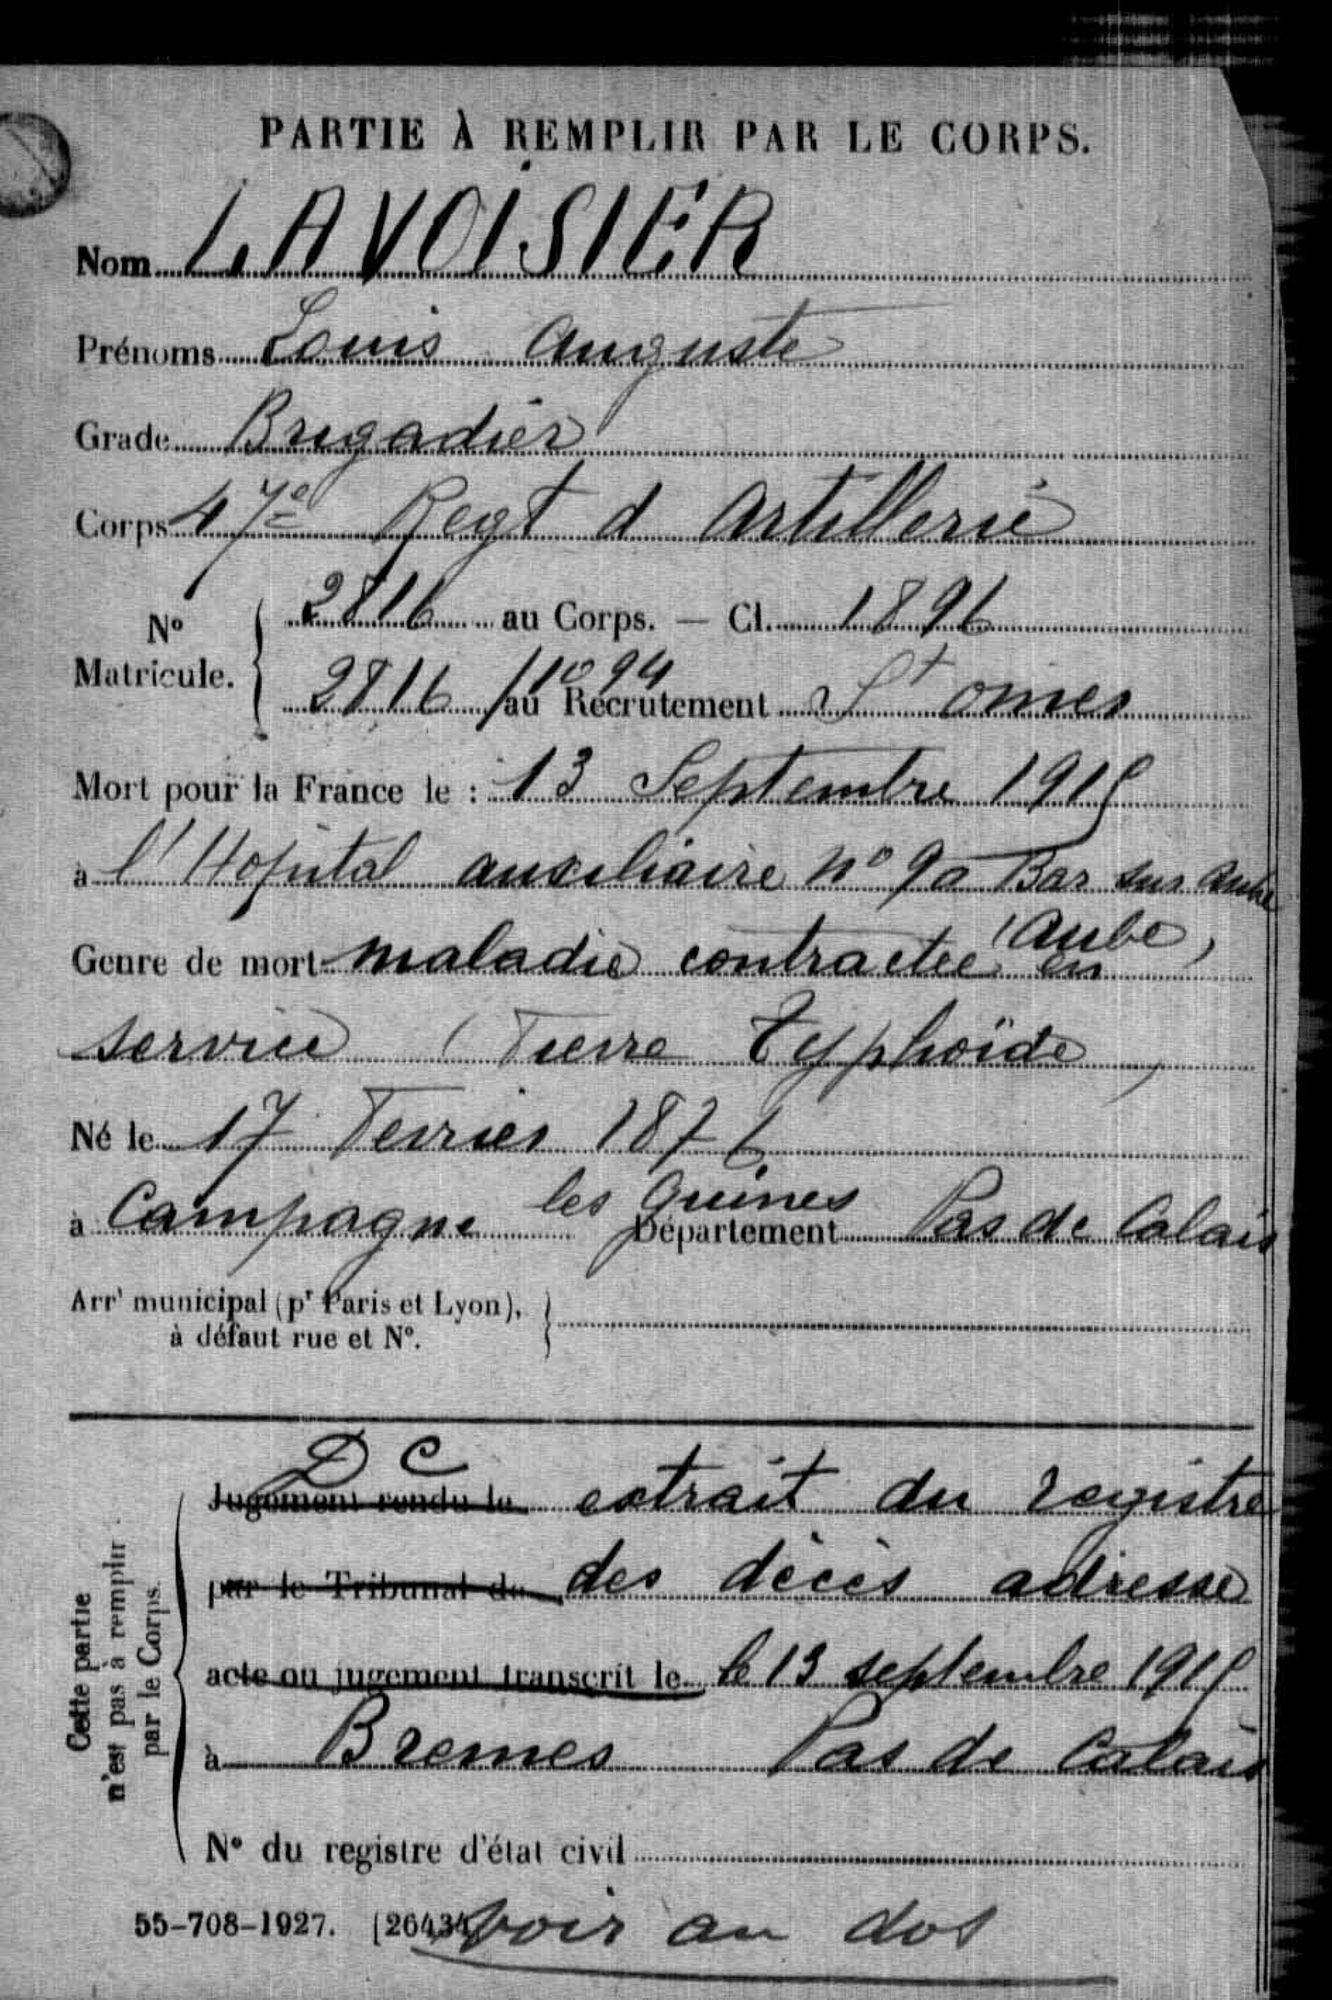 PARTIE À REMPLIR PAR LE CORPS.
Nom LAVOISIER
Prénoms Louis Auguste
Grade Brigadier
Corps 47e Regt d Artillerie
No Matricule. 2816 au Corps. — Cl. 1896
2816 / 1094 au Recrutement St omer
Mort pour la France le : 13 Septembre 1915
à l'Hopital auxiliaire no 9 a Bar sur Aube
(Aube)
Genre de mort maladie contractée en
service (Fievre typhoïde)
Né le 17 Fevrier 1876
à Campagne les Guines Département Pas de Calais
Arrt municipal (pr Paris et Lyon),
à défaut rue et No.
Cette partie
n'est pas à remplir
par le Corps.
DC
Jugement rendu le extrait du registre
par le Tribunal de des décès adresse
acte ou jugement transcrit le le 13 septembre 1915
à Bremes Pas de Calais
No du registre d'état civil
55-708-1927. [26434
voir au dos